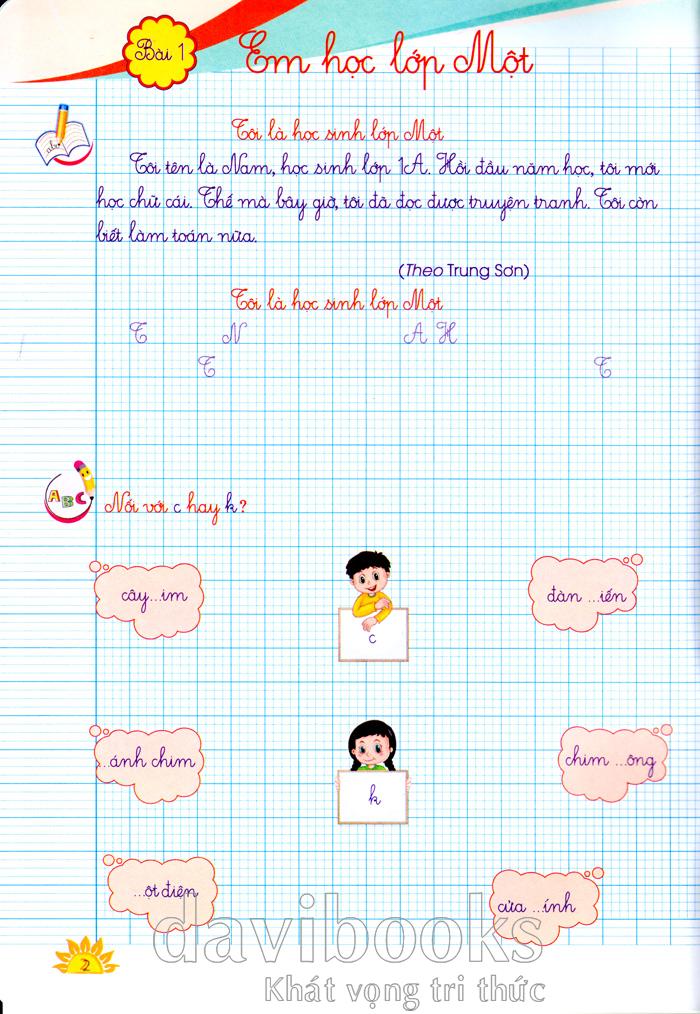 Bài 1
Em học lớp Một
Tôi là học sinh lớp Một
Tôi tên là Nam, học sinh lớp 1A. Hồi đầu năm học, tôi mới
học chữ cái. Thế mà bây giờ, tôi đã đọc được truyện tranh. Tôi còn
biết làm toán nữa.
(Theo Trung Sơn)
Tôi là học sinh lớp Một
T N A H
T T
ABC
Nối với c hay k?
cây...im
c
đàn ...iến
...ánh chim
k
chim ...ông
...ột điện
cửa ...ính
davibooks
Khát vọng tri thức
2